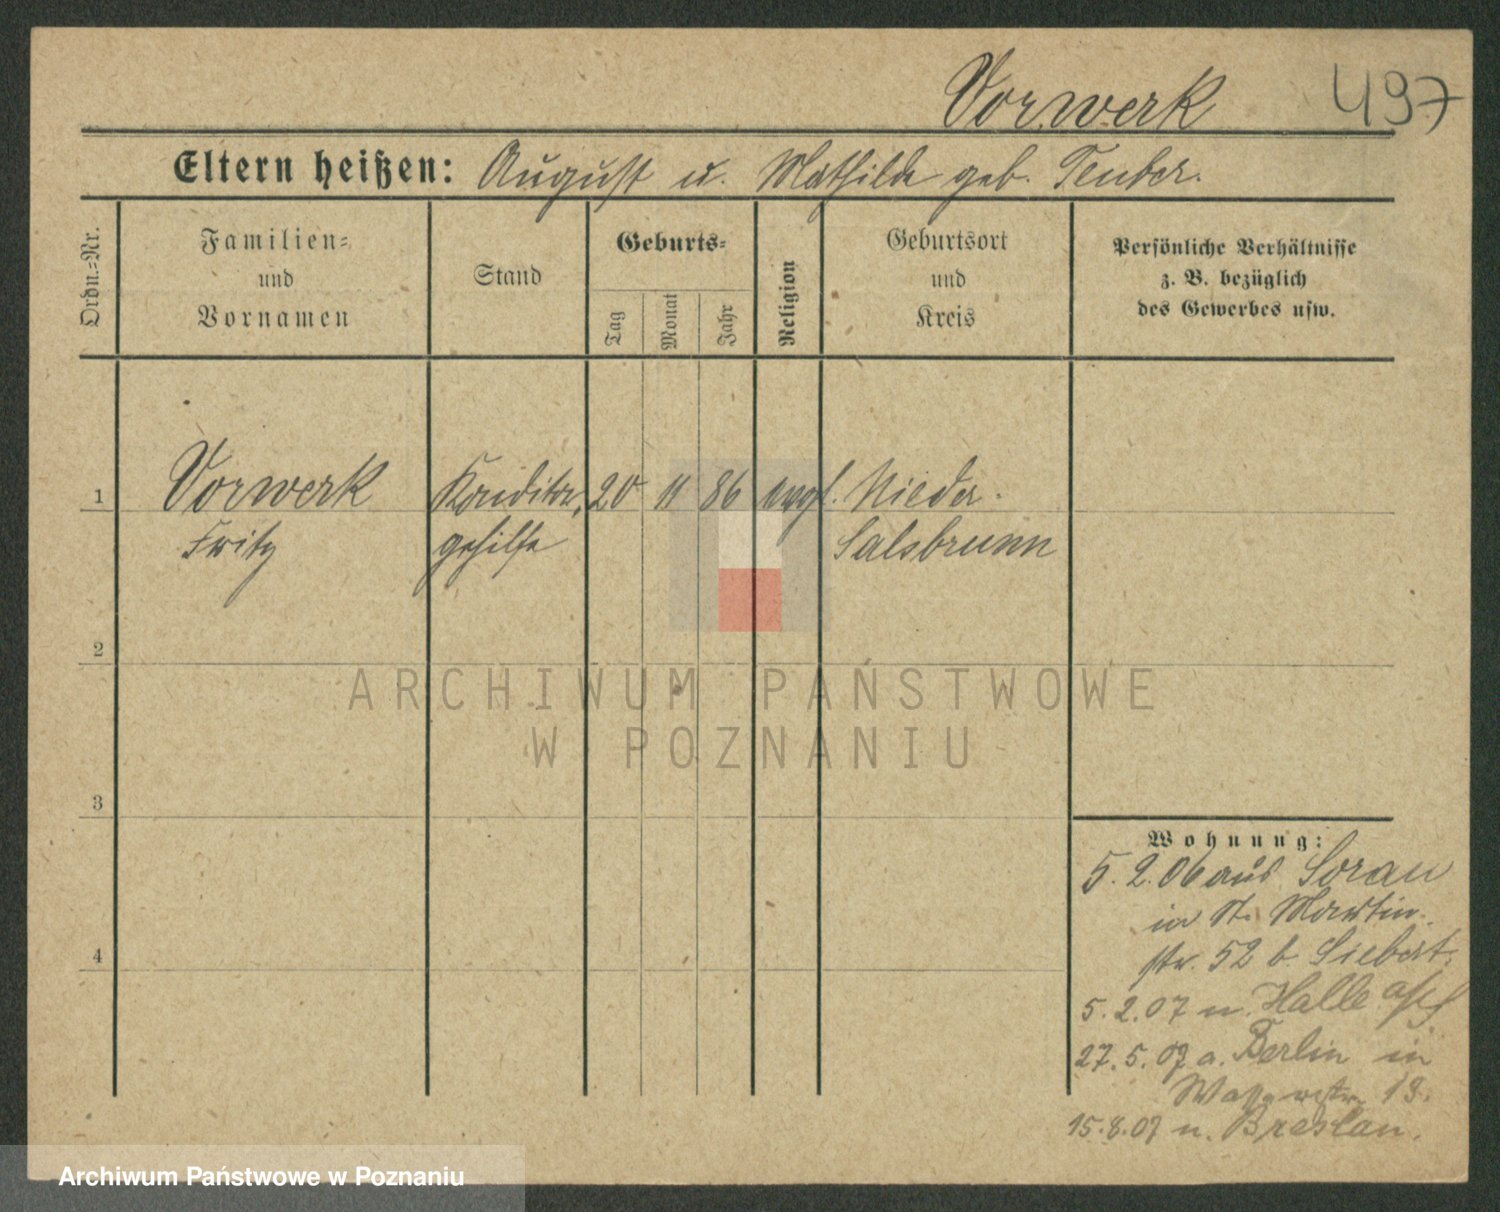 Vorwerk 497
Eltern heißen: August u. Mathilde geb. Teuber.
Ordn.=Nr.
Familien=
und
Vornamen
Stand
Geburts=
Tag
Monat
Jahr
Religion
Geburtsort
und
Kreis
Persönliche Verhältnisse
z. B. bezüglich
des Gewerbes usw.
1 Vorwerk Konditor, 20 11 86 evgl. Nieder-
Fritz gehilfe Salsbrunn
2
ARCHIWUM PAŃSTWOWE
W POZNANIU
3
Wohnung:
5.2.06 aus Sorau
in St. Martin
str. 52 b. Siebert.
5.2.07 n. Halle a/S
27.5.07 a. Berlin in
13.
15.8.07 n. Breslau.
4
Archiwum Państwowe w Poznaniu